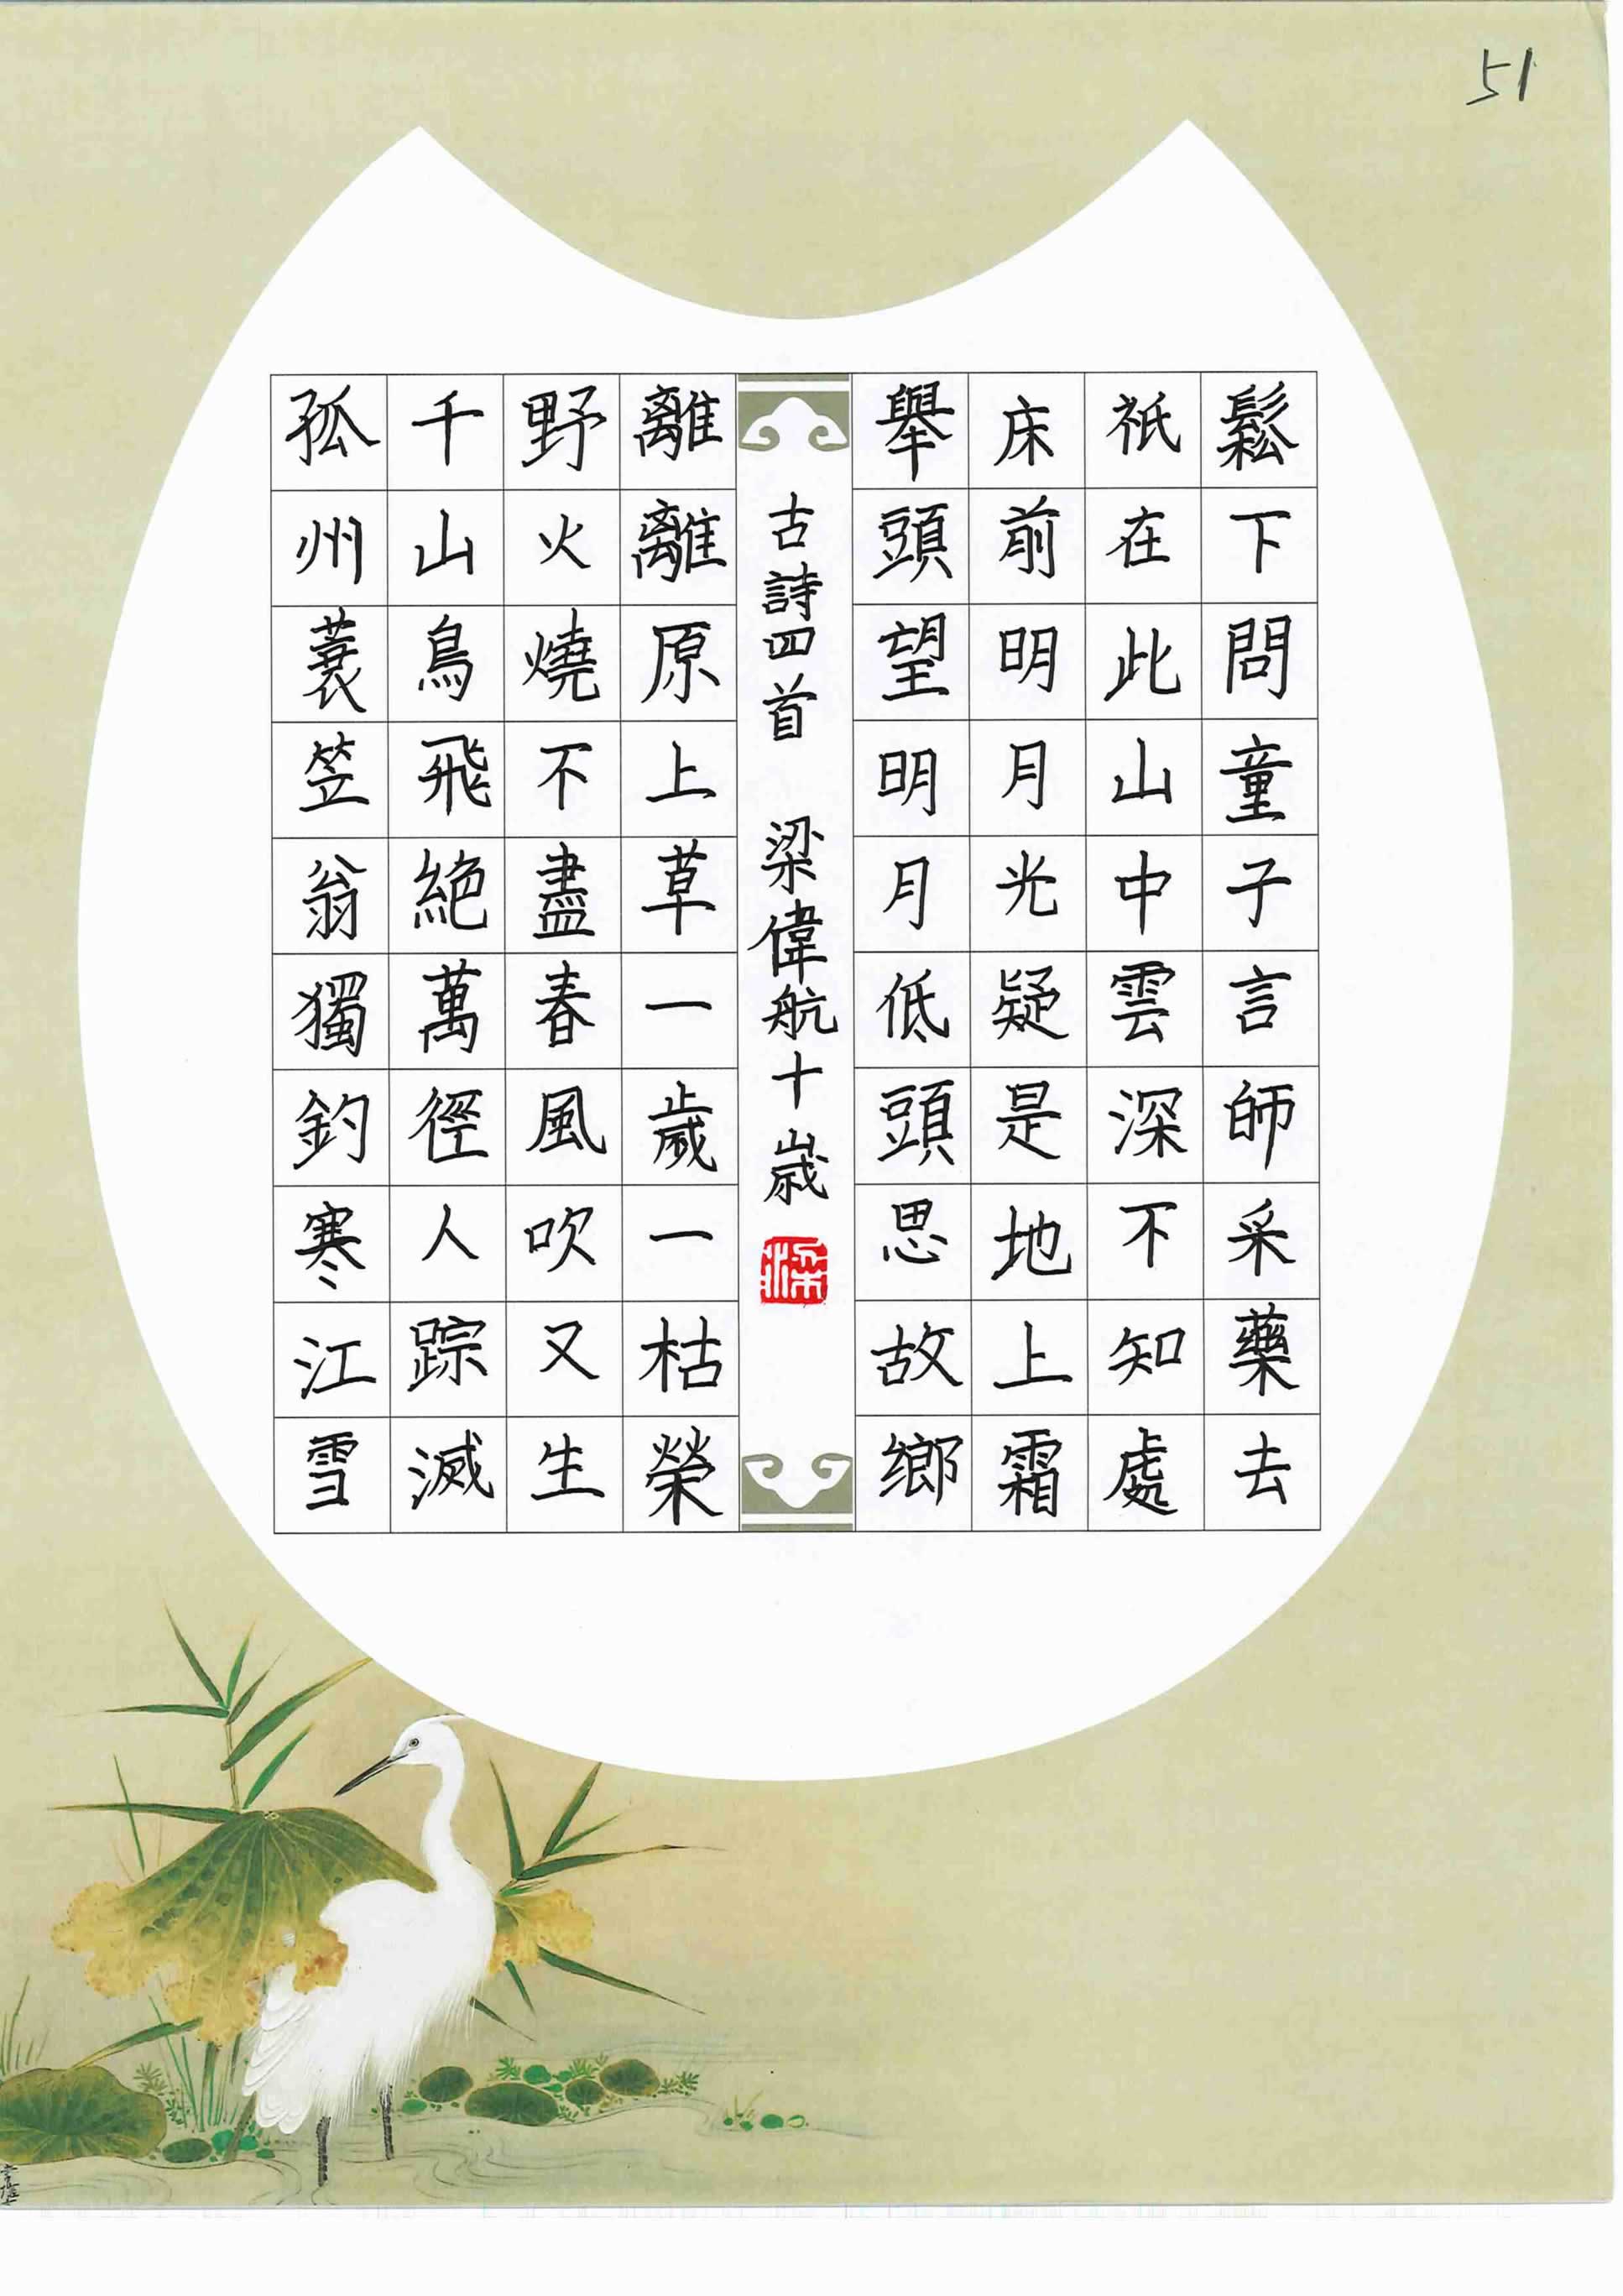 51
鬆下問童子言師采藥去
祇在此山中雲深不知處
床前明月光疑是地上霜
舉頭望明月低頭思故鄉
古詩四首 梁偉航十歲
梁
離離原上草一歲一枯榮
野火燒不盡春風吹又生
千山鳥飛絕萬徑人踪滅
孤州蓑笠翁獨釣寒江雪